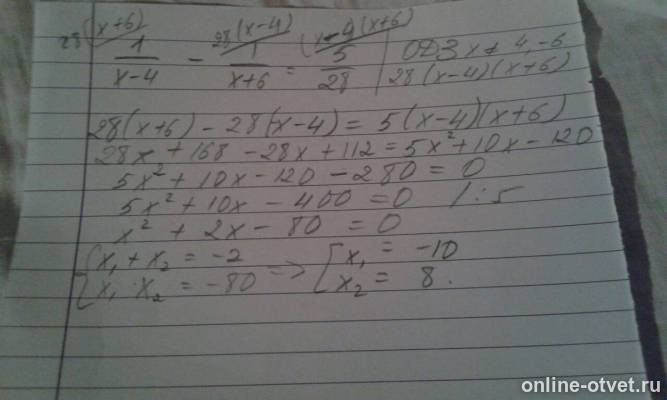 28(x+6) 28(x-4) (x-4)(x+6)
1/(x-4) - 1/(x+6) = 5/28 | ОДЗ x≠ 4,-6
28(x-4)(x+6)
28(x+6) - 28(x-4) = 5(x-4)(x+6)
28x + 168 - 28x + 112 = 5x² + 10x - 120
5x² + 10x - 120 - 280 = 0
5x² + 10x - 400 = 0 | : 5
x² + 2x - 80 = 0
{ x₁ + x₂ = -2 => [ x₁ = -10
{ x₁ · x₂ = -80 [ x₂ = 8.
online-otvet.ru